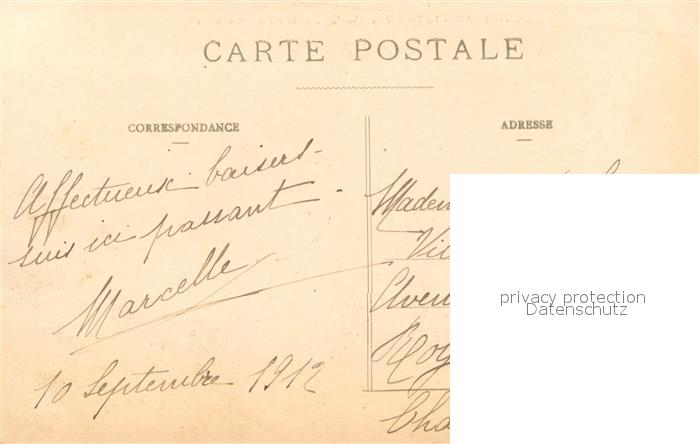 CARTE POSTALE
CORRESPONDANCE
ADRESSE
Affectueux baisers -
suis ici passant -
Marcelle
10 Septembre 1912
Madem
Vil
Aven
Roy
Cha
privacy protection
Datenschutz